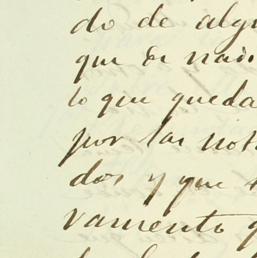 do de algu
que se nai
lo que queda
por las not
dos y que s
vamento q